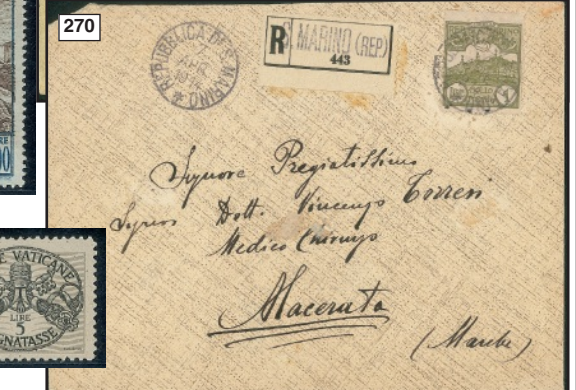 270
REPUBBLICA DI S. MARINO
R S. MARINO (REP.)
443
Signore Pregiatissimo
Signor Dott. Vincenzo Torresi
Medico Chirurgo
Macerata
(Marche)
VATICANE
LIRE
5
GNATASSE